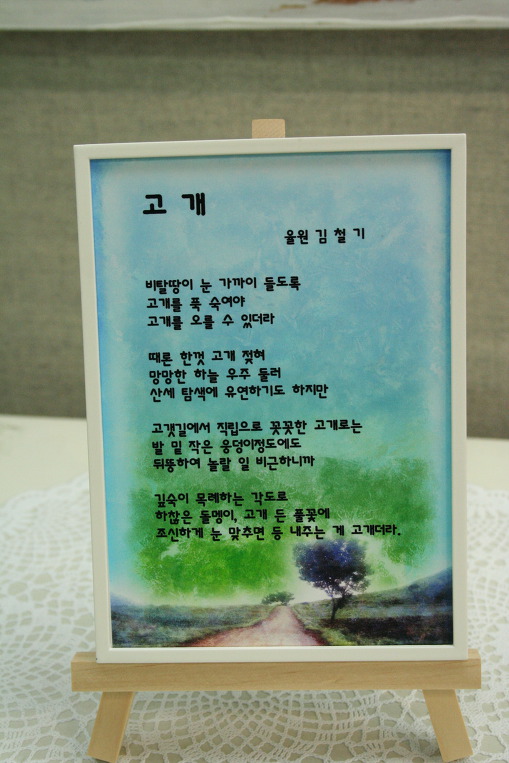 고 개
율원 김 철 기
비탈땅이 눈 가까이 들도록
고개를 푹 숙여야
고개를 오를 수 있더라
때론 한껏 고개 젖혀
망망한 하늘 우주 둘러
산세 탐색에 유연하기도 하지만
고갯길에서 직립으로 꼿꼿한 고개로는
발 밑 작은 웅덩이정도에도
뒤뚱하여 놀랄 일 비근하니까
깊숙이 목례하는 각도로
하찮은 돌멩이, 고개 든 풀꽃에
조신하게 눈 맞추면 등 내주는 게 고개더라.